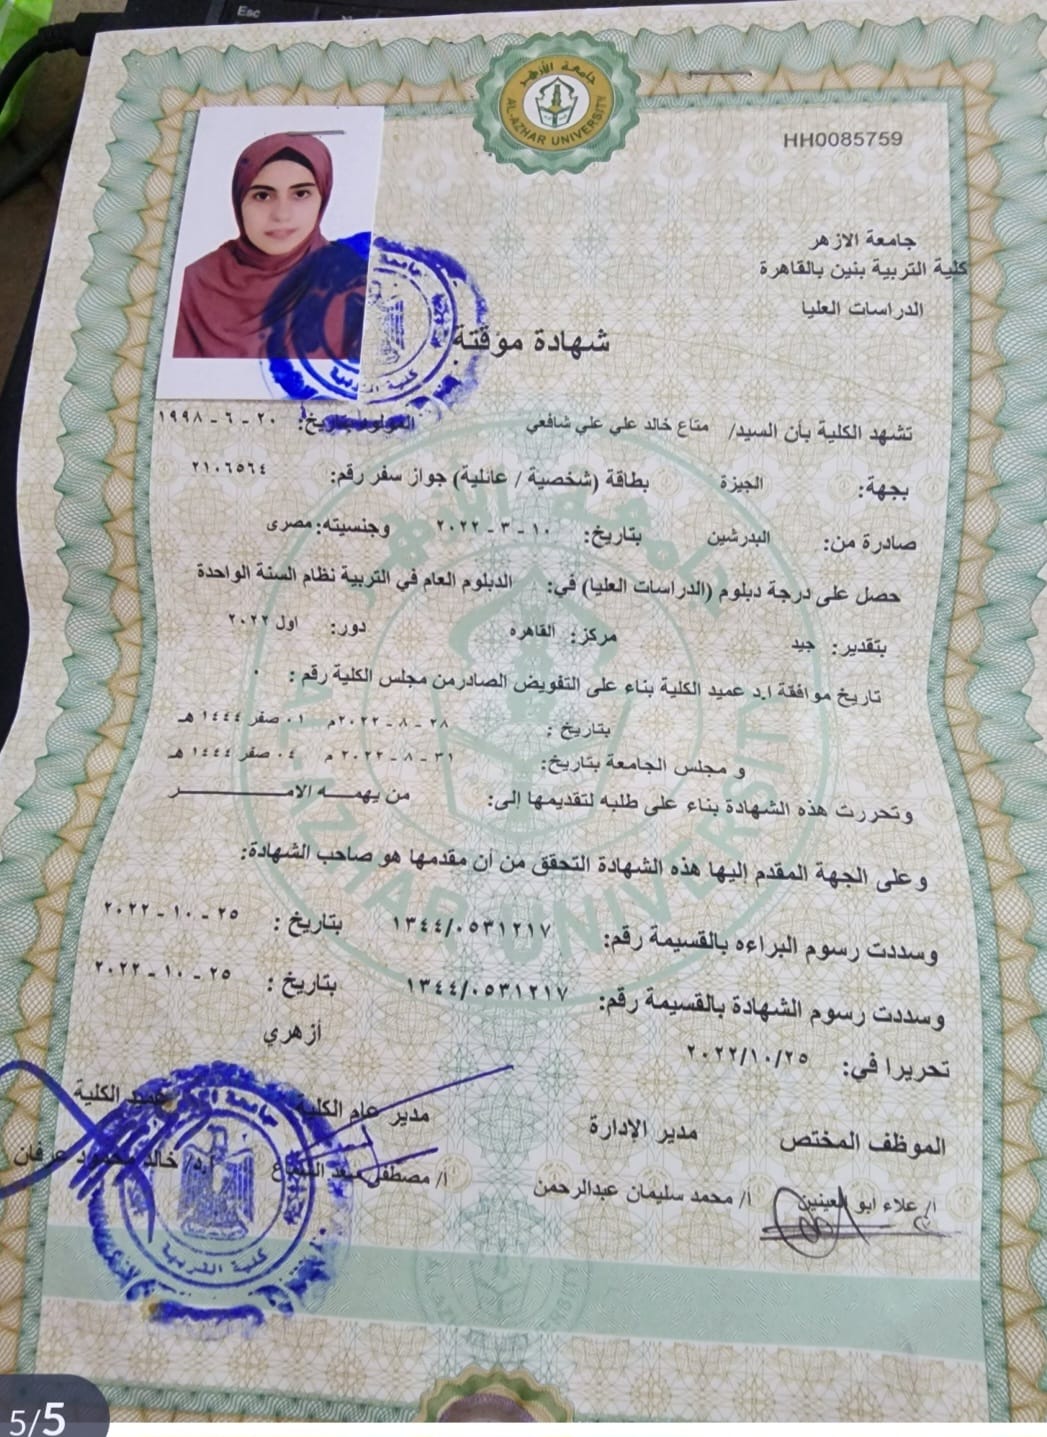 Esc
جامعة الأزهر
AL-AZHAR UNIVERSITY
HH0085759
جامعة الازهر
كلية التربية بنين بالقاهرة
الدراسات العليا
شهادة موقتة
تشهد الكلية بأن السيد/ متاع خالد علي علي شافعي المولود بتاريخ: ٢٠ - ٦ - ١٩٩٨
بجهة: الجيزة بطاقة (شخصية / عائلية) جواز سفر رقم: ٢١٠٦٥٦٤
صادرة من: البدرشين بتاريخ: ١٠ - ٣ - ٢٠٢٢ وجنسيته: مصرى
حصل على درجة دبلوم (الدراسات العليا) في: الدبلوم العام في التربية نظام السنة الواحدة
بتقدير: جيد مركز: القاهره دور: اول ٢٠٢٢
تاريخ موافقة ا.د عميد الكلية بناء على التفويض الصادرمن مجلس الكلية رقم : ٠
بتاريخ : ٢٨ - ٨ - ٢٠٢٢م ٠١ صفر ١٤٤٤ هـ
و مجلس الجامعة بتاريخ: ٣١ - ٨ - ٢٠٢٢ م ٠٤ صفر ١٤٤٤ هـ
وتحررت هذه الشهادة بناء على طلبه لتقديمها إلى: من يهمـــه الامـــــــــــر
وعلى الجهة المقدم إليها هذه الشهادة التحقق من أن مقدمها هو صاحب الشهادة:
وسددت رسوم البراءه بالقسيمة رقم: ١٣٤٤/٠٥٣١٢١٧ بتاريخ : ٢٥ - ١٠ - ٢٠٢٢
وسددت رسوم الشهادة بالقسيمة رقم: ١٣٤٤/٠٥٣١٢١٧ بتاريخ : ٢٥ - ١٠ - ٢٠٢٢
تحريرا في: ٢٠٢٢/١٠/٢٥ أزهري
الموظف المختص مدير الإدارة مدير عام الكلية عميد الكلية
ا/ علاء ابو العينين ا/ محمد سليمان عبدالرحمن ا/ مصطفى سعد أ.د خالد محمود عرفان
كلية التربية
5/5